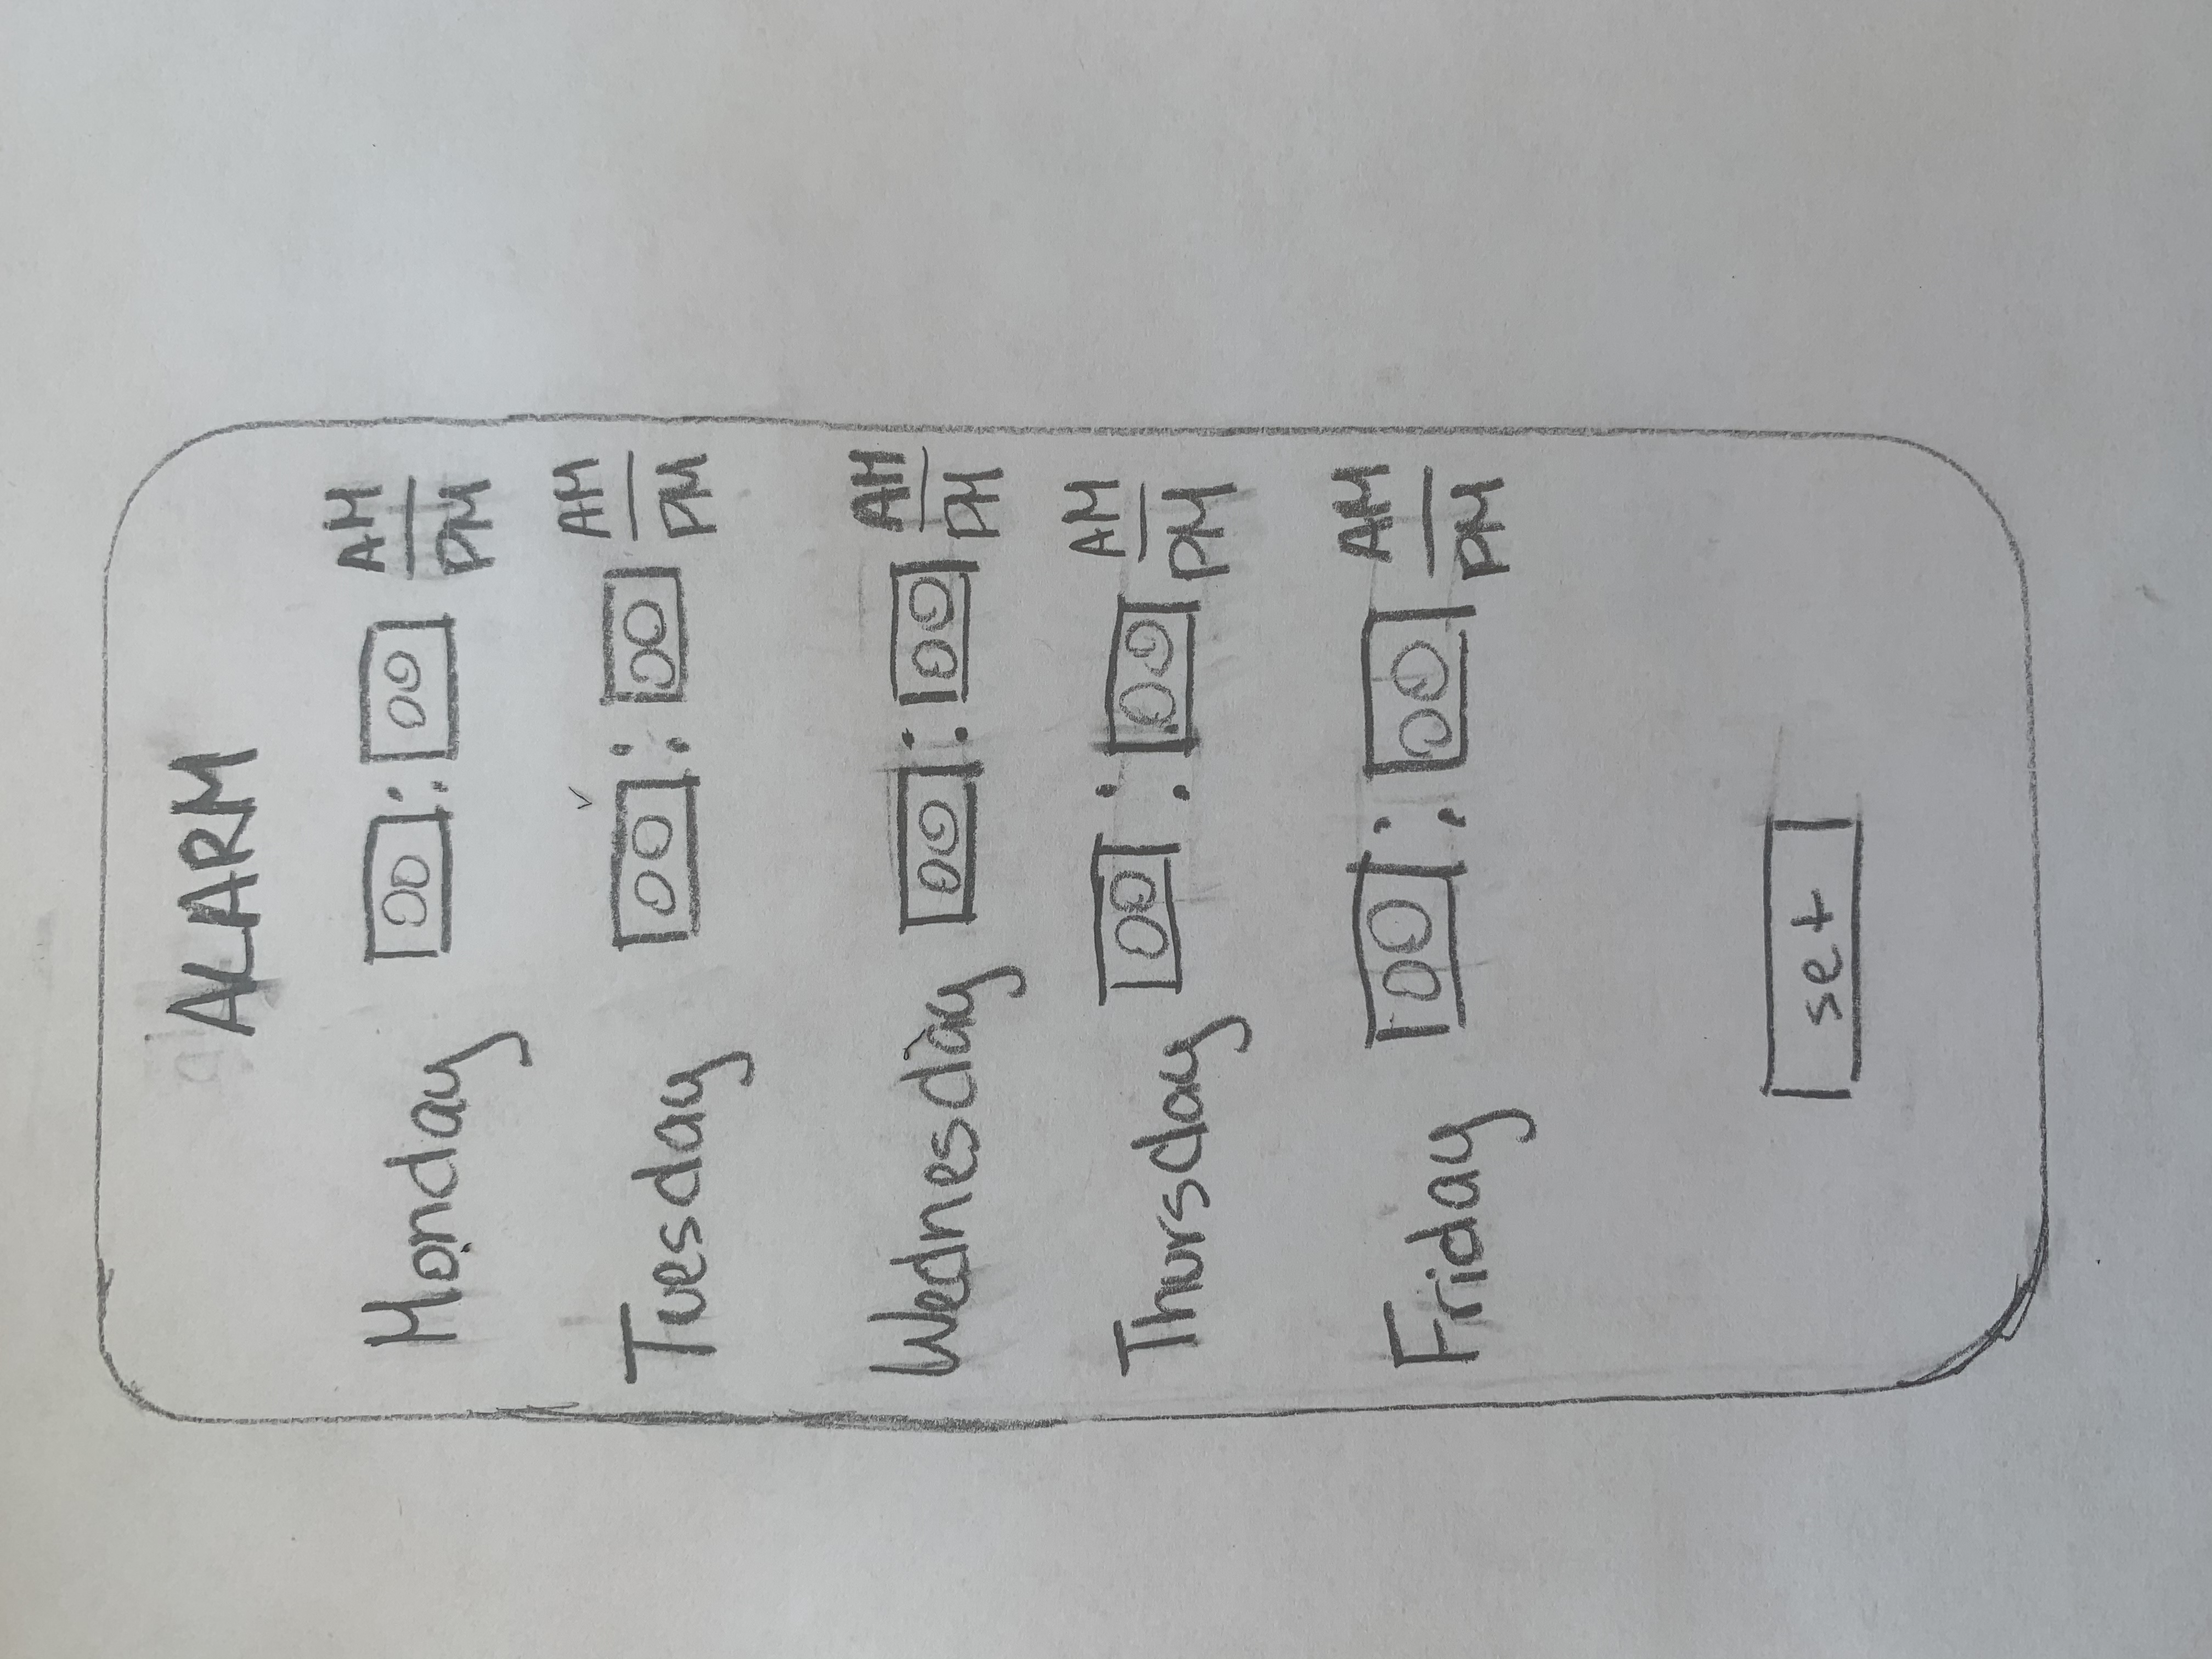 ALARM
Monday 00 : 00 AM
PM
Tuesday 00 : 00 AM
PM
Wednesday 00 : 00 AM
PM
Thursday 00 : 00 AM
PM
Friday 00 : 00 AM
PM
set